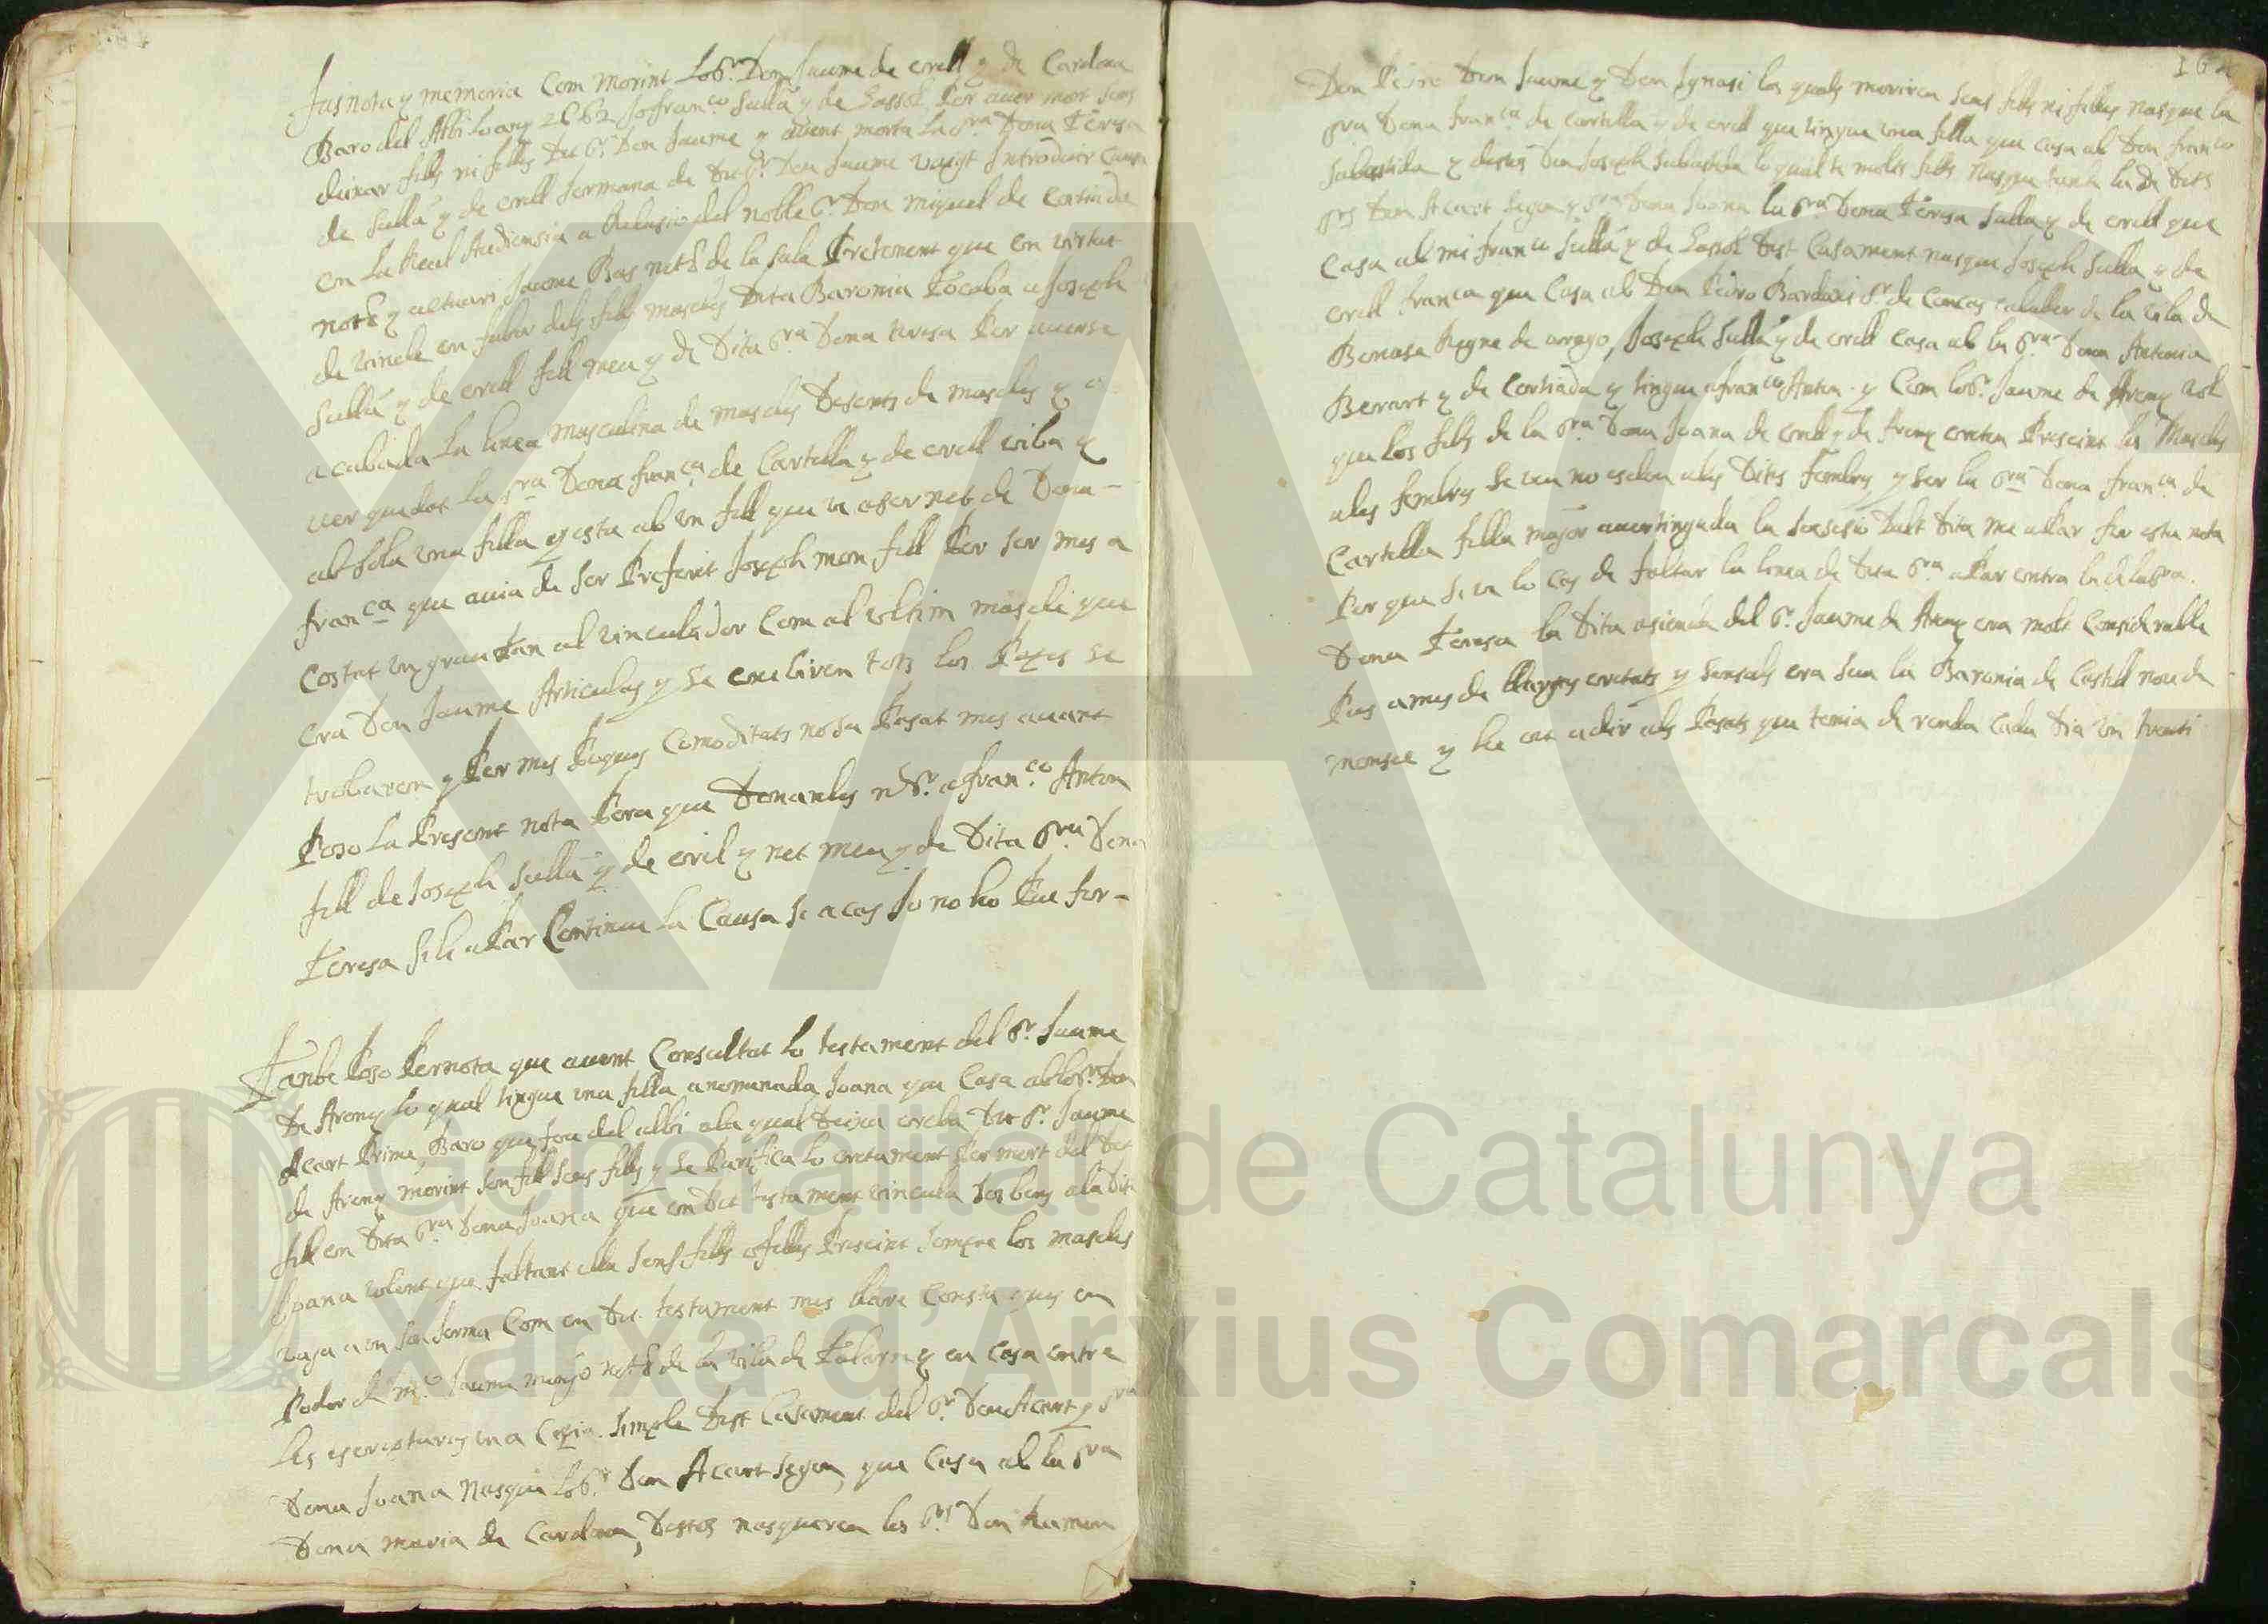 Jas nota y memoria Com morint lo Sr. Don Jaume de erill y de Cardona
Baro del Albi lo any 1662 Jo Franco Sullá y de Gassol Per auer mort sens
deixar fills ni filles Dit Sr. Don Jaume y auent morta la Sra Dona Teresa
de Sullá y de erill Jermana de dit Sr. Don Jaume vaigt Introduir Causa
en la Real Audiensia a Relasio del noble Sr. Don miquel de Cortiada
nott y actuari Jaume Bas nott de la sala Pretenent que en virtut
de vincle en fabor dels fills mascles Dita Baronia Tocaba a Joseph
Sullá y de erill fill meu y de Dita Sra Dona teresa Per auerse
acabada la linea masculina de mascles Desents de mascles y a
ver quedat la Sra Dona franca de Cartella y de erill viba y
ab sola una filla y esta ab un fill que ve a ser net de Dona
franca que auia de ser Preferit Joseph mon fill Per ser mes a
Costat un grau tan al vinculador Com al ultim mascle que
era Don Jaume Articulas y se escriviren tots los Papes se
trobaren y Per mes Poques Comoditats no sa Pasat mes auant
Poso la Present nota Pera que Donantlos nt Sr. a franco Anton
fill de Joseph Sullá y de eril y net meu y de Dita Sra Dona
Teresa si li aPar Continue la Causa si acas Jo no ho Pue fer
Tanbe Poso Per nota que auent Consultat lo testament del Sr. Jaume
De Areny lo qual tingue una filla anomenada Joana que Casa ab lo Sr. Don
Acart Primer Baro que fou del albi a la qual Deixa ereba Dit Sr. Jaume
de Areny morint son fill sens fills y se Purifica lo eretament Per mort del Dit
fill en Dita Sra Dona Joana que en Dit testament vincula sos bens a la Dita
Joana volent que faltant ella sens fills o filles Preseint sempre los mascles
vaja a un son Jerma Com en Dit testament mes llarc Consta ques en
Poder de Mo Jaume nott de la vila de Talarn y en Casa entre
les escripturas una Copia simple Dest Casament del Sr Don Acart y Sra
Dona Joana Nasque lo Sr. Don Acart segon, que Casa ab la Sra
Dona maria de Cardona, Destos nasqueren los Srs Don Ramon
164
Don Pedro Don Jaume y Don Ignasi los quals moriren sens fills ni filles nasque la
Sra Dona franca de Cartella y de erill que tingue una filla que casa ab Don franco
Sabastida y destos Don Joseph Sabastida lo qual te molts fills Nasque tanbe de Dits
Srs Don Acart segon y Sra Dona Joana la Sra Dona Teresa Sulla y de erill que
Casa ab mi franco Sullá y de Gassol Dest Casament nasque Joseph Sulla y de
erill franca que Casa ab Don Pedro Bardaxi Sr de Concas de la vila de
Benasa Regne de arago, Joseph Sullá y de erill casa ab la Sra Dona Antonia
Berart y de Cortiada y tingue a franco Anton y Com lo Sr. Jaume de Areny vol
que los fills de la Sra Dona Joana de erill y de Areny entren Preseint los Mascles
a les fembres se veu no esclou a les Dites Fembres, y ser la Sra Dona franca de
Cartella filla major auer tinguda la sucesio Dalt Dita me aPar fer esta nota
Per que si ve lo cas de faltar la linea de Dita Sra aPar entra la de la Sra.
Dona Teresa la Dita asienda del Sr. Jaume de Areny era molt Considerable
Pus a mes de llargas eretats y sensals era sua la Baronia de Castell nou de
monsec y he oit a dir als Pasats que tenia de renda cada Dia un trenti
Generalitat de Catalunya
Xarxa d'Arxius Comarcals
XAC